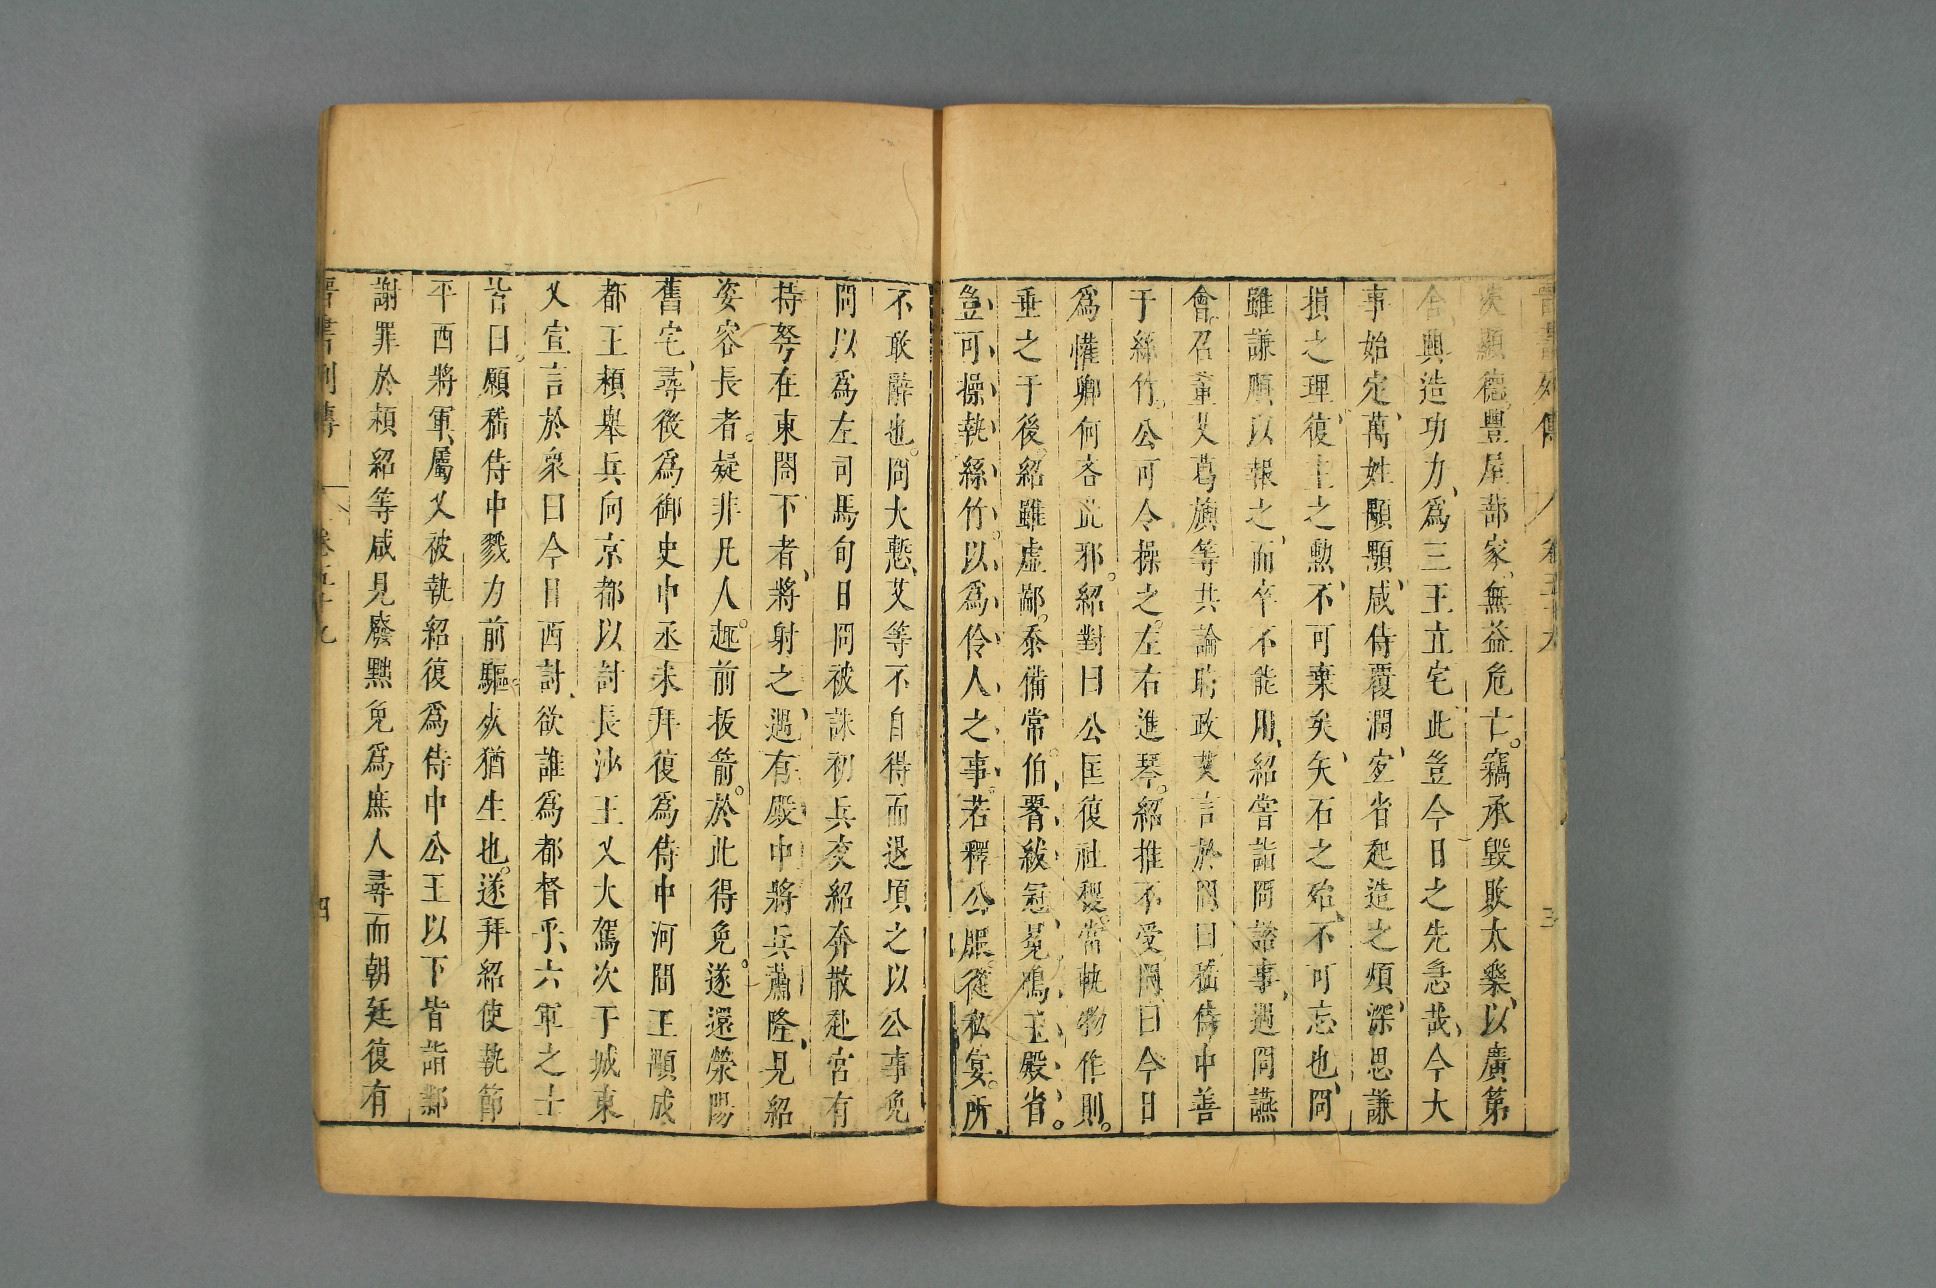 晉書列傳 卷五十九 三
宮顯德豐屋蔀家無益危亡竊承毀敗太樂以廣第
舍興造功力爲三王立宅此豈今日之先急哉今大
事始定萬姓顒顒咸侍覆潤宜省起造之煩深思謙
損之理復主之勲不可棄矣矢石之殆不可忘也冏
雖謙順以報之而卒不能用紹嘗詣冏諮事遇冏讌
會召董艾葛旟等共論時政艾言於冏曰嵇侍中善
于絲竹公可令操之左右進琴紹推不受冏曰今日
爲懽卿何吝此邪紹對曰公匡復社稷當軌物作則
垂之于後紹雖虛鄙忝備常伯署紱冠冕鳴玉殿省
豈可操執絲竹以爲伶人之事若釋公服從私宴所
不敢辭也冏大慙艾等不自得而退頃之以公事免
冏以爲左司馬旬日冏被誅初兵交紹奔散赴宮有
持弩在東閤下者將射之遇有殿中將兵蕭隆見紹
姿容長者疑非凡人趣前拔箭於此得免遂還滎陽
舊宅尋徵爲御史中丞未拜復爲侍中河間王顒成
都王穎舉兵向京都以討長沙王乂大駕次于城東
乂宣言於衆曰今日西討欲誰爲都督乎六軍之士
皆曰願嵇侍中戮力前驅死猶生也遂拜紹使執節
平西將軍屬乂被執紹復爲侍中公王以下皆詣鄴
謝罪於穎紹等咸見廢黜免爲庶人尋而朝廷復有
晉書列傳 卷五十九 四